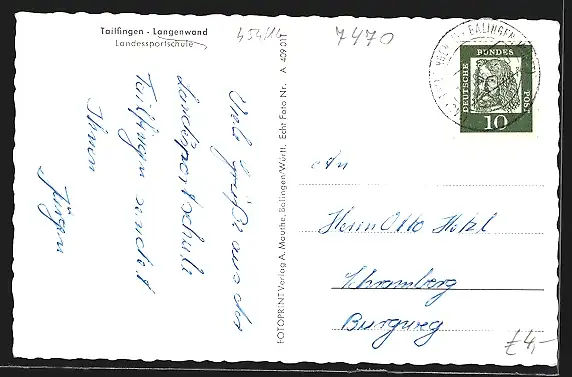 Tailfingen - Langenwand
Landessportschule
454/14
7470
BALINGEN
DEUTSCHE BUNDESPOST
10
Viele Grüße aus der
Landessportschule
Tailfingen sendet
Ihnen
Jürgen
FOTOPRINT Verlag A. Mauthe, Balingen/Württ. Echt Foto Nr. A 409 01T
An
Herrn Otto
Schramberg
Burgweg
£4,-